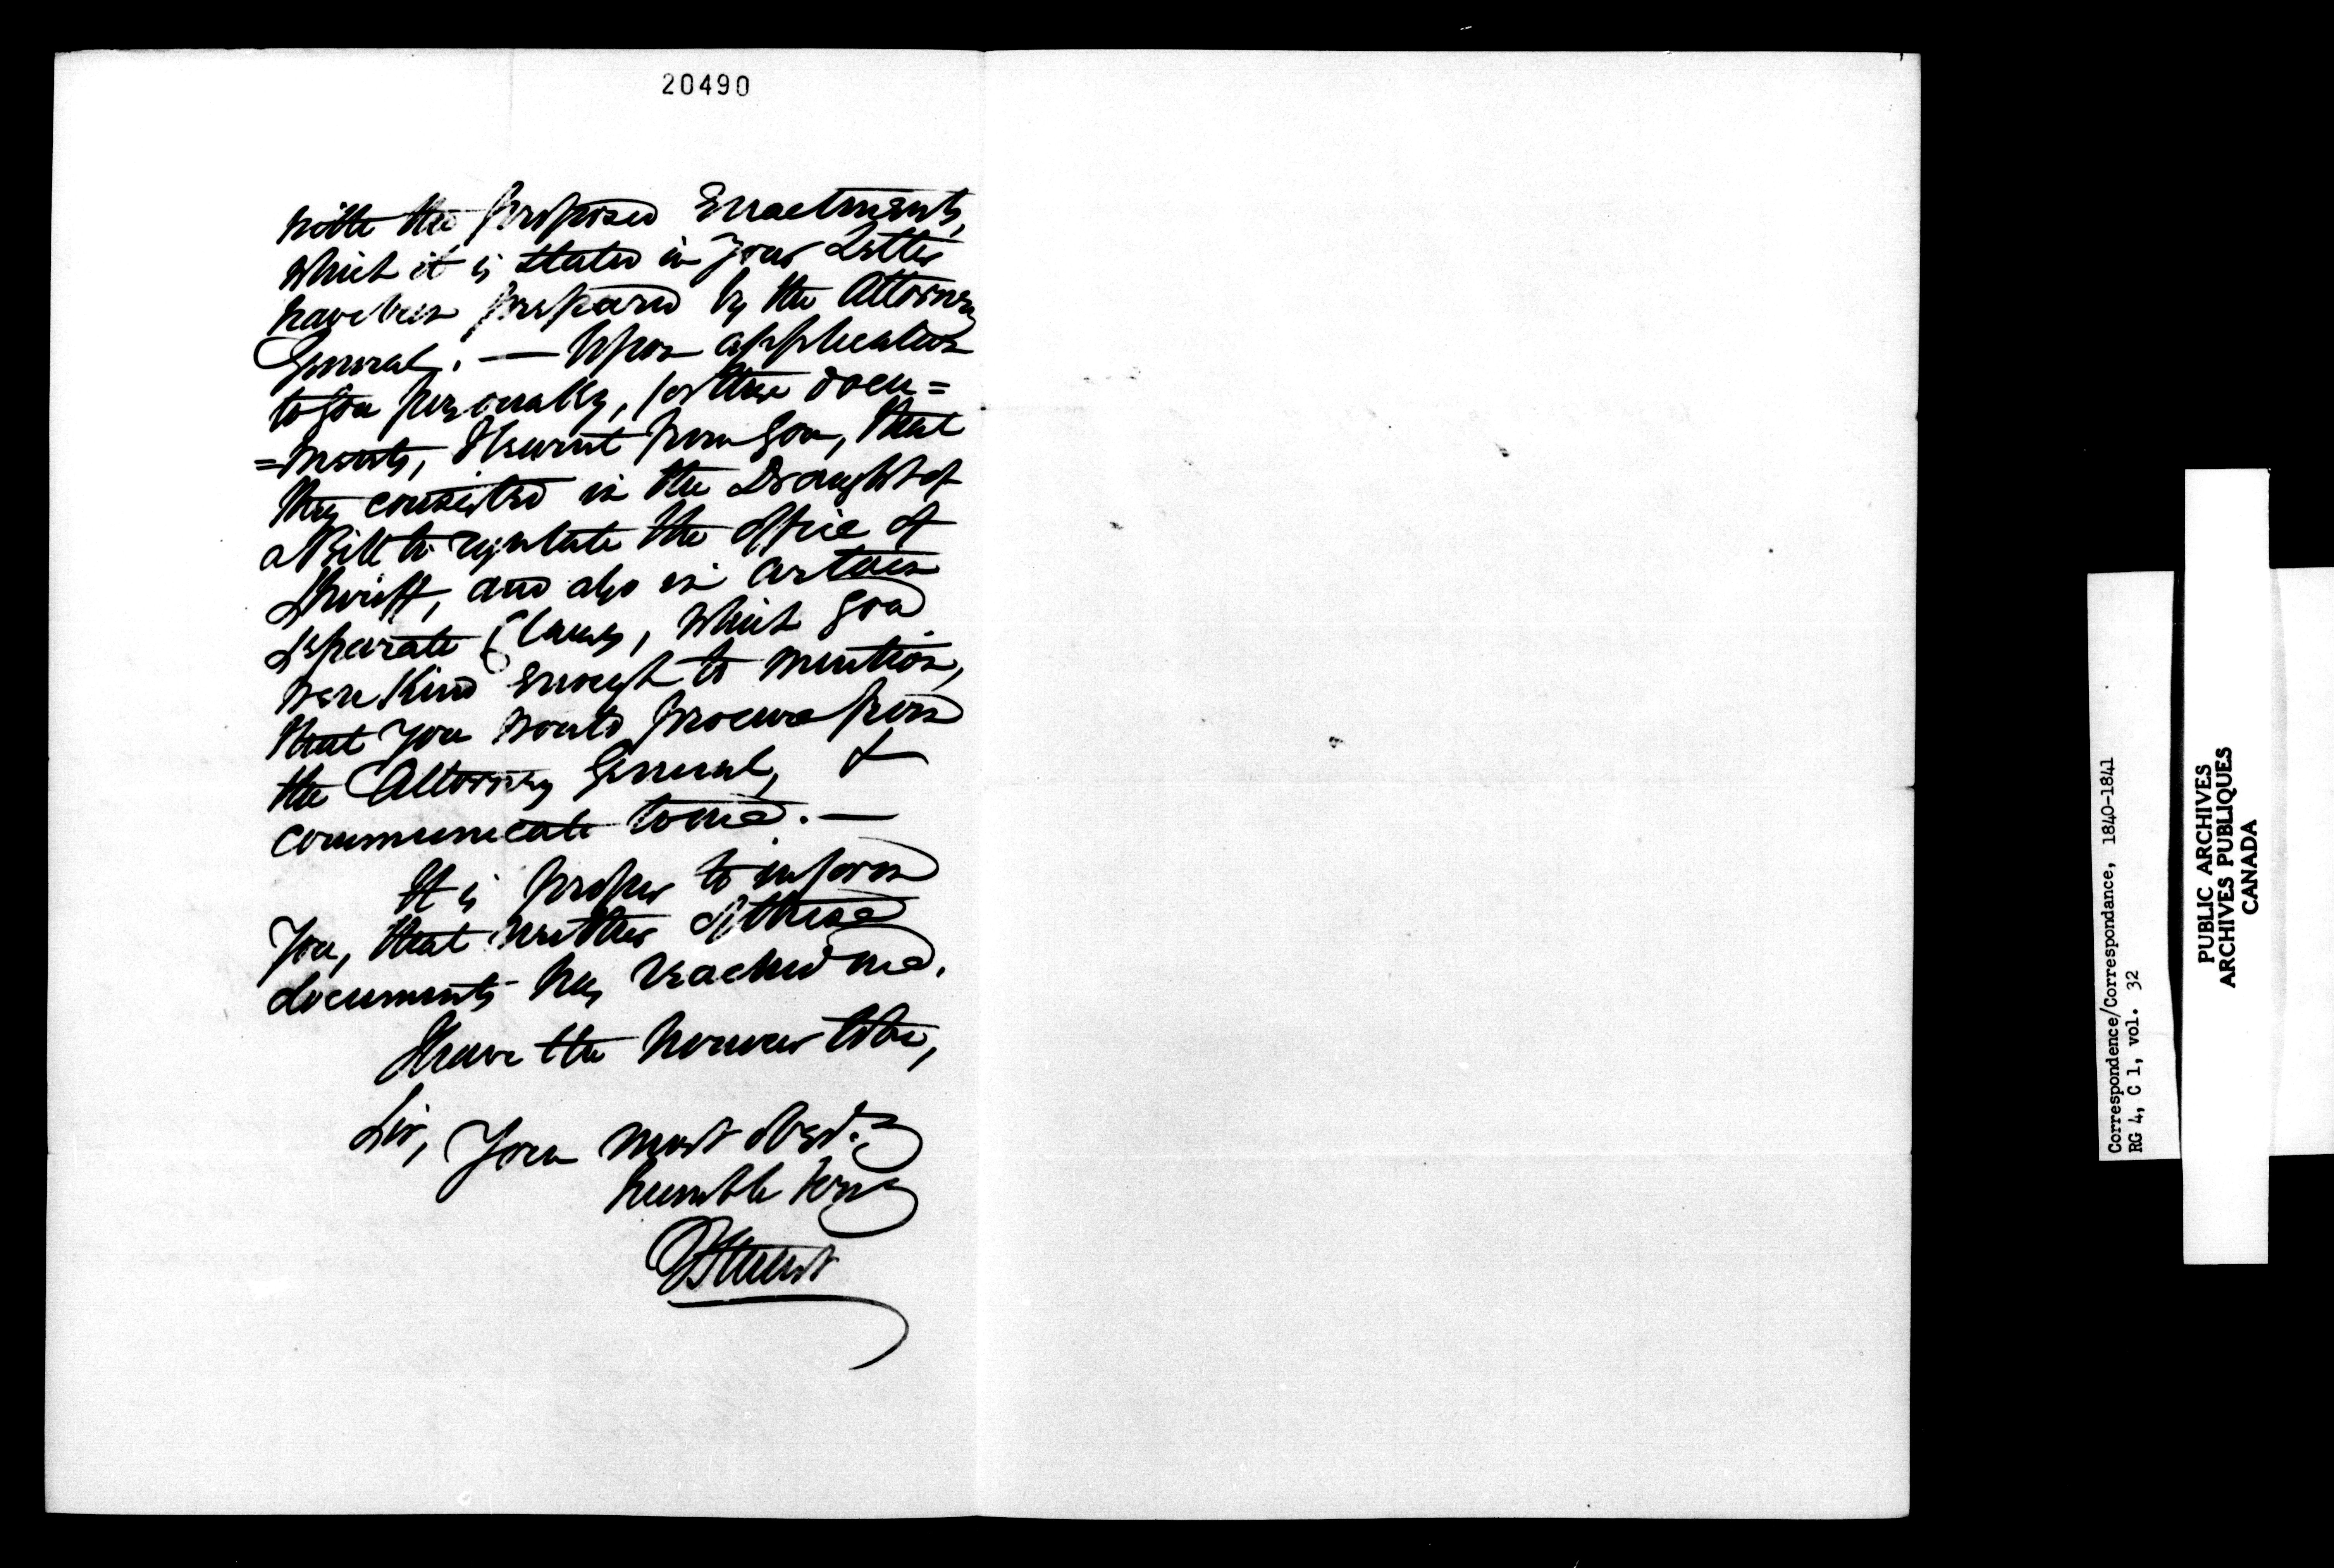 20490
with the proposed Enactments,
which it is stated in your Letter
have been prepared by the Attorney
General. — Upon application
to you personally, for these docu=
=ments, I learnt from you, that
they consisted in the Draught of
a Bill to regulate the office of
Sheriff, and also in certain
separate Clauses, which you
were kind enough to mention,
that you would procure from
the Attorney General, &
communicate to me. —
It is proper to inform
you, that neither of these
documents has reached me.
I have the honour to be,
Sir, Your most obedt.
humble serv
J Stuart
Correspondence/Correspondance, 1840-1841
RG 4, C 1, vol. 32
PUBLIC ARCHIVES
ARCHIVES PUBLIQUES
CANADA